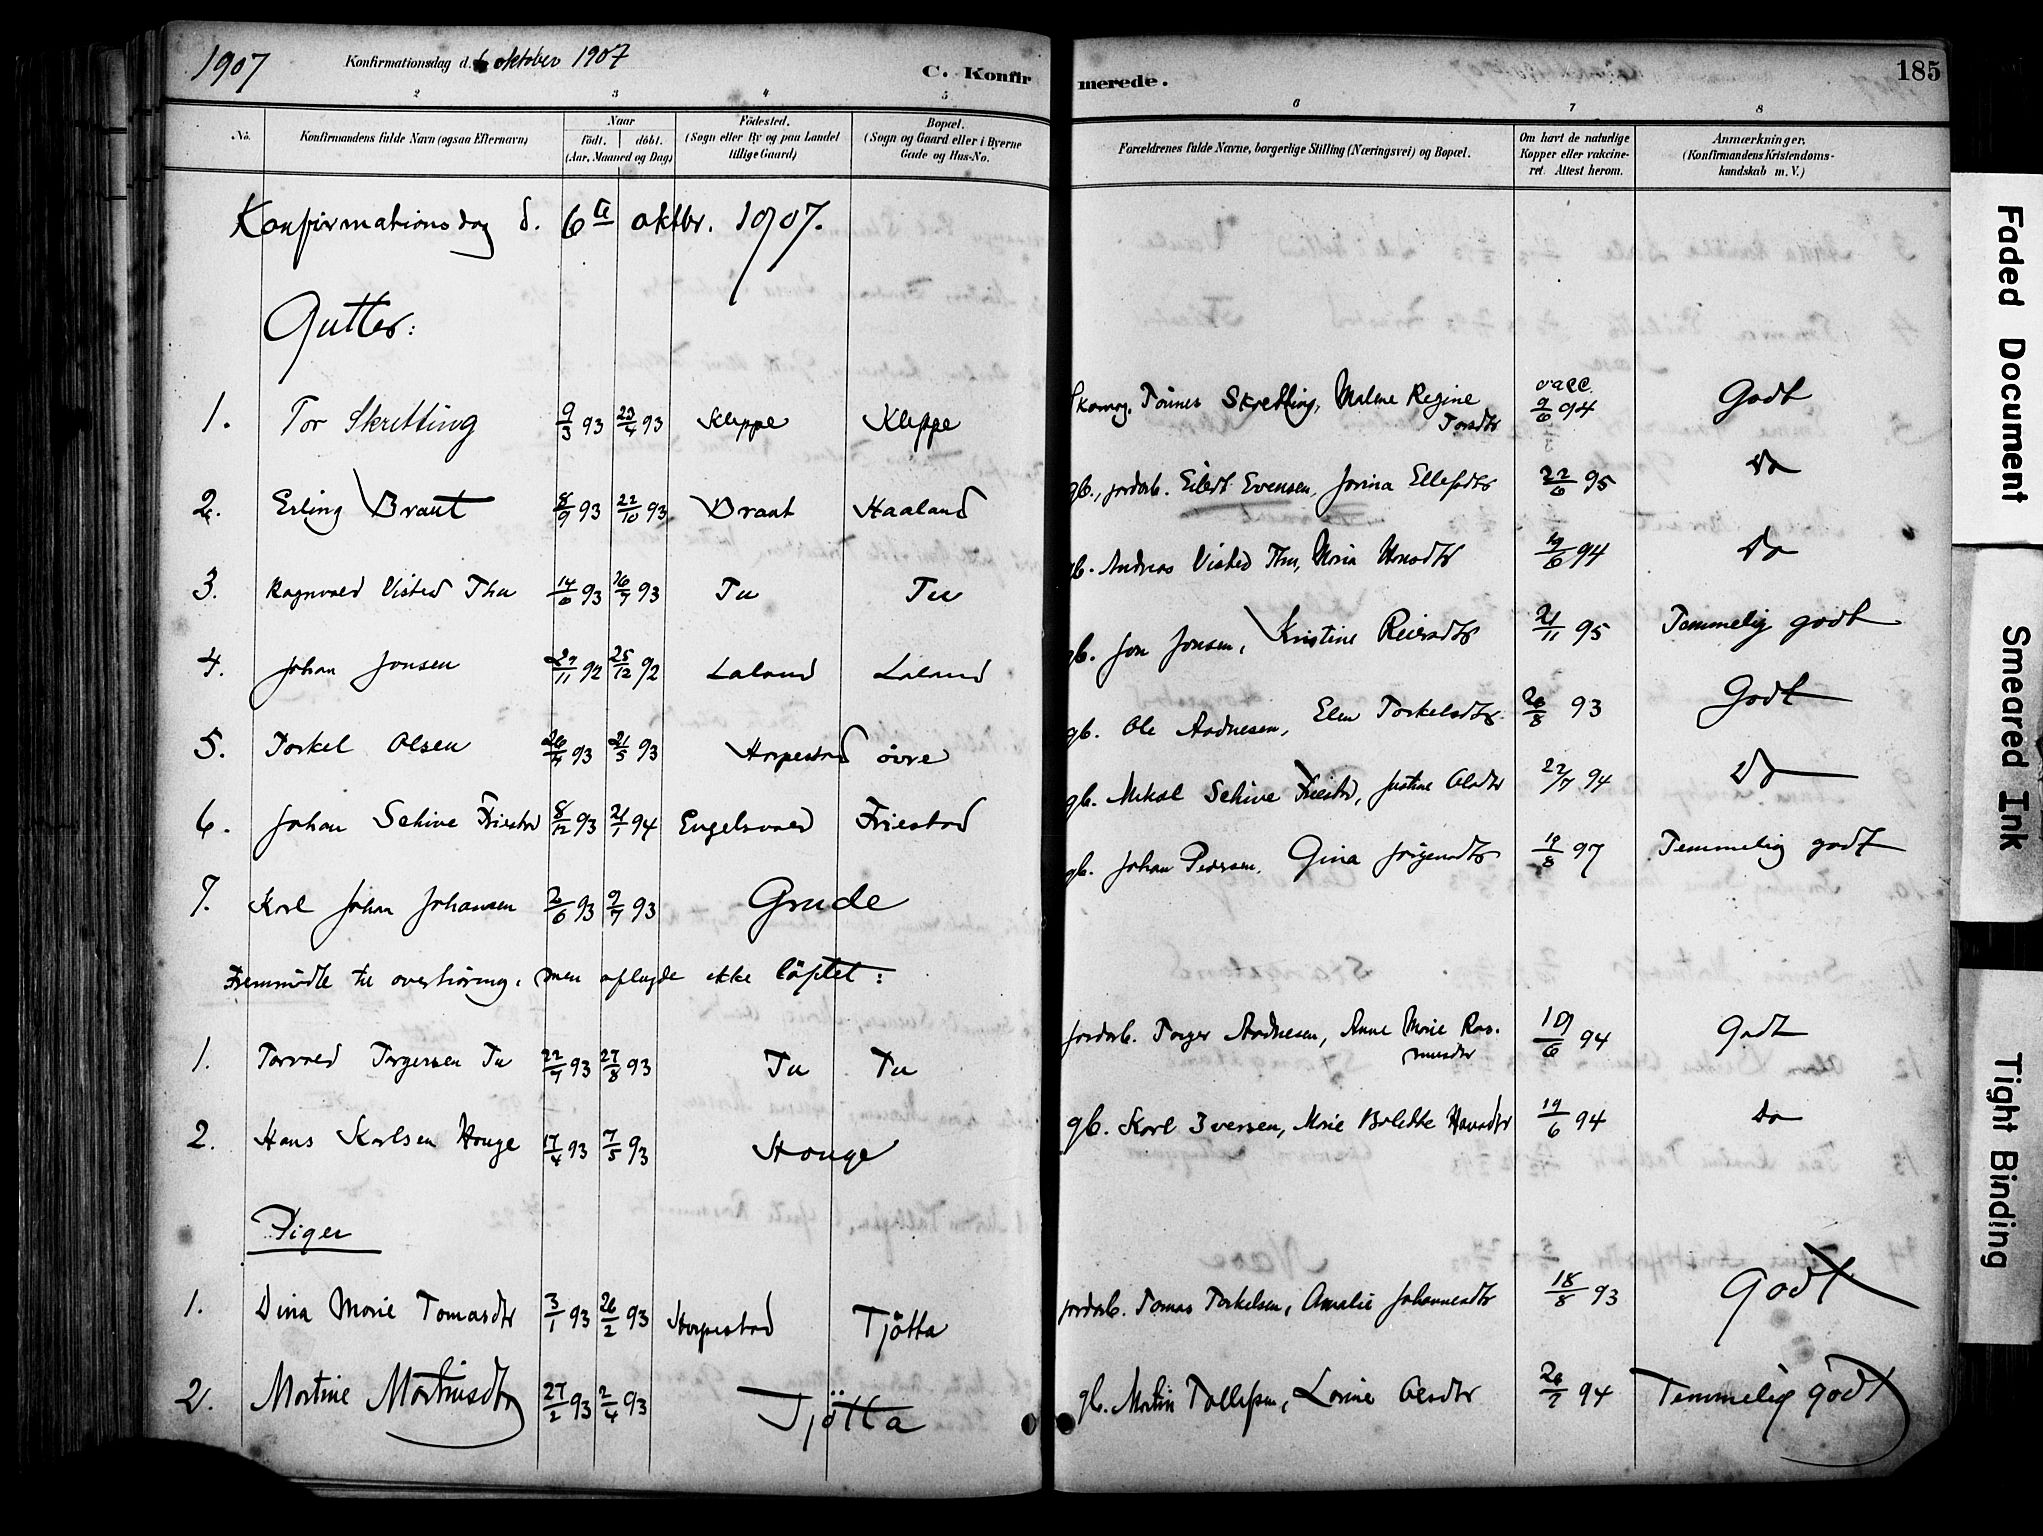 1907 Konfirmationsdag d. 6 oktober 1907 C. Konfirmerede. 185
2 3 4 5 6 7 8
No. Konfirmandens fulde Navn (ogsaa Efternavn) Naar født. døbt. (Aar, Maaned og Dag) Fødested. (Sogn eller By og paa Landet tillige Gaard) Bopæl. (Sogn og Gaard eller i Byerne Gade og Hus-No. Forældrenes fulde Navne, borgerlige Stilling (Næringsvei) og Bopæl. Om havt de naturlige Kopper eller vakcineret. Attest herom. Anmærkninger. (Konfirmandens Kristendomskundskab m. V.)
Konfirmationsdag d. 6te oktbr. 1907.
Gutter:
1. Tor Skretting 9/3 93 23/4 93 Kleppe Kleppe Skomag. Tønnes Skretting, Malene Regine Torsdtr vacc. 9/6 94 Godt
2. Erling Braut 8/9 93 22/10 93 Braut Haaland gb., jordarb. Eilert Evensen, Jorina Ellefsdtr 22/6 95 Do
3. Ragnvald Visted Thu 14/6 93 16/7 93 Tu Tu gb. Andreas Visted Thu, Maria Monsdtr 19/6 94 Do
4. Johan Jonsen 27/11 92 25/12 92 Laland Laland gb. Jon Jonsen, Kristine Reiersdtr 21/11 95 Temmelig godt
5. Torkel Olsen 26/4 93 21/5 93 Horpestad øvre gb. Ole Aadnesen, Elen Torkelsdtr 26/8 93 Godt
6. Johan Sehive Friestad 8/12 93 21/1 94 Engelsvold Friestad gb. Mikal Sehive Friestd, Justine Olsdtr 22/7 94 Do
7. Karl Johan Johansen 2/6 93 9/7 93 Grude gb. Johan Pedersen, Gina Jørgensdtr 19/8 97 Temmelig godt
Fremmødte til overhøring, men aflagde ikke løftet:
1. Torvald Torgersen Tu 22/7 93 27/8 93 Tu Tu jordarb. Torger Aadnesen, Anne Marie Rasmusdtr 19/6 94 Godt
2. Hans Karlsen Houge 17/4 93 7/5 93 Houge gb. Karl Iversen, Marie Bolette Hansdtr 19/6 94 Do
Piger
1. Dina Marie Tomasdtr 3/1 93 26/2 93 Horpestad Tjøtta jordarb. Tomas Torkelsen, Amalie Johannesdtr 18/8 93 Godt
2. Martine Martinsdtr 27/2 93 2/4 93 Tjøtta gb. Martin Tollefsen, Lovise Olsdtr 26/7 94 Temmelig godt
Faded Document
Smeared Ink
Tight Binding